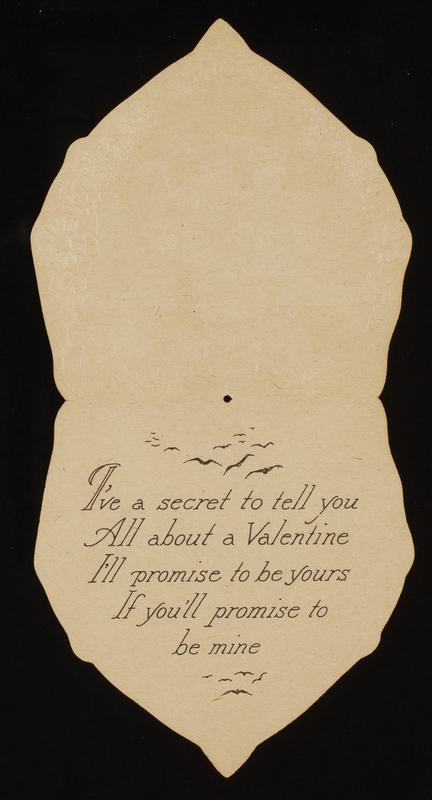 I've a secret to tell you
All about a Valentine
I'll promise to be yours
If you'll promise to
be mine